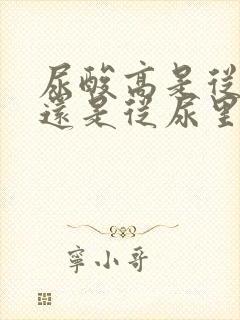 尿酸高是從
還是從尿里
寧小哥